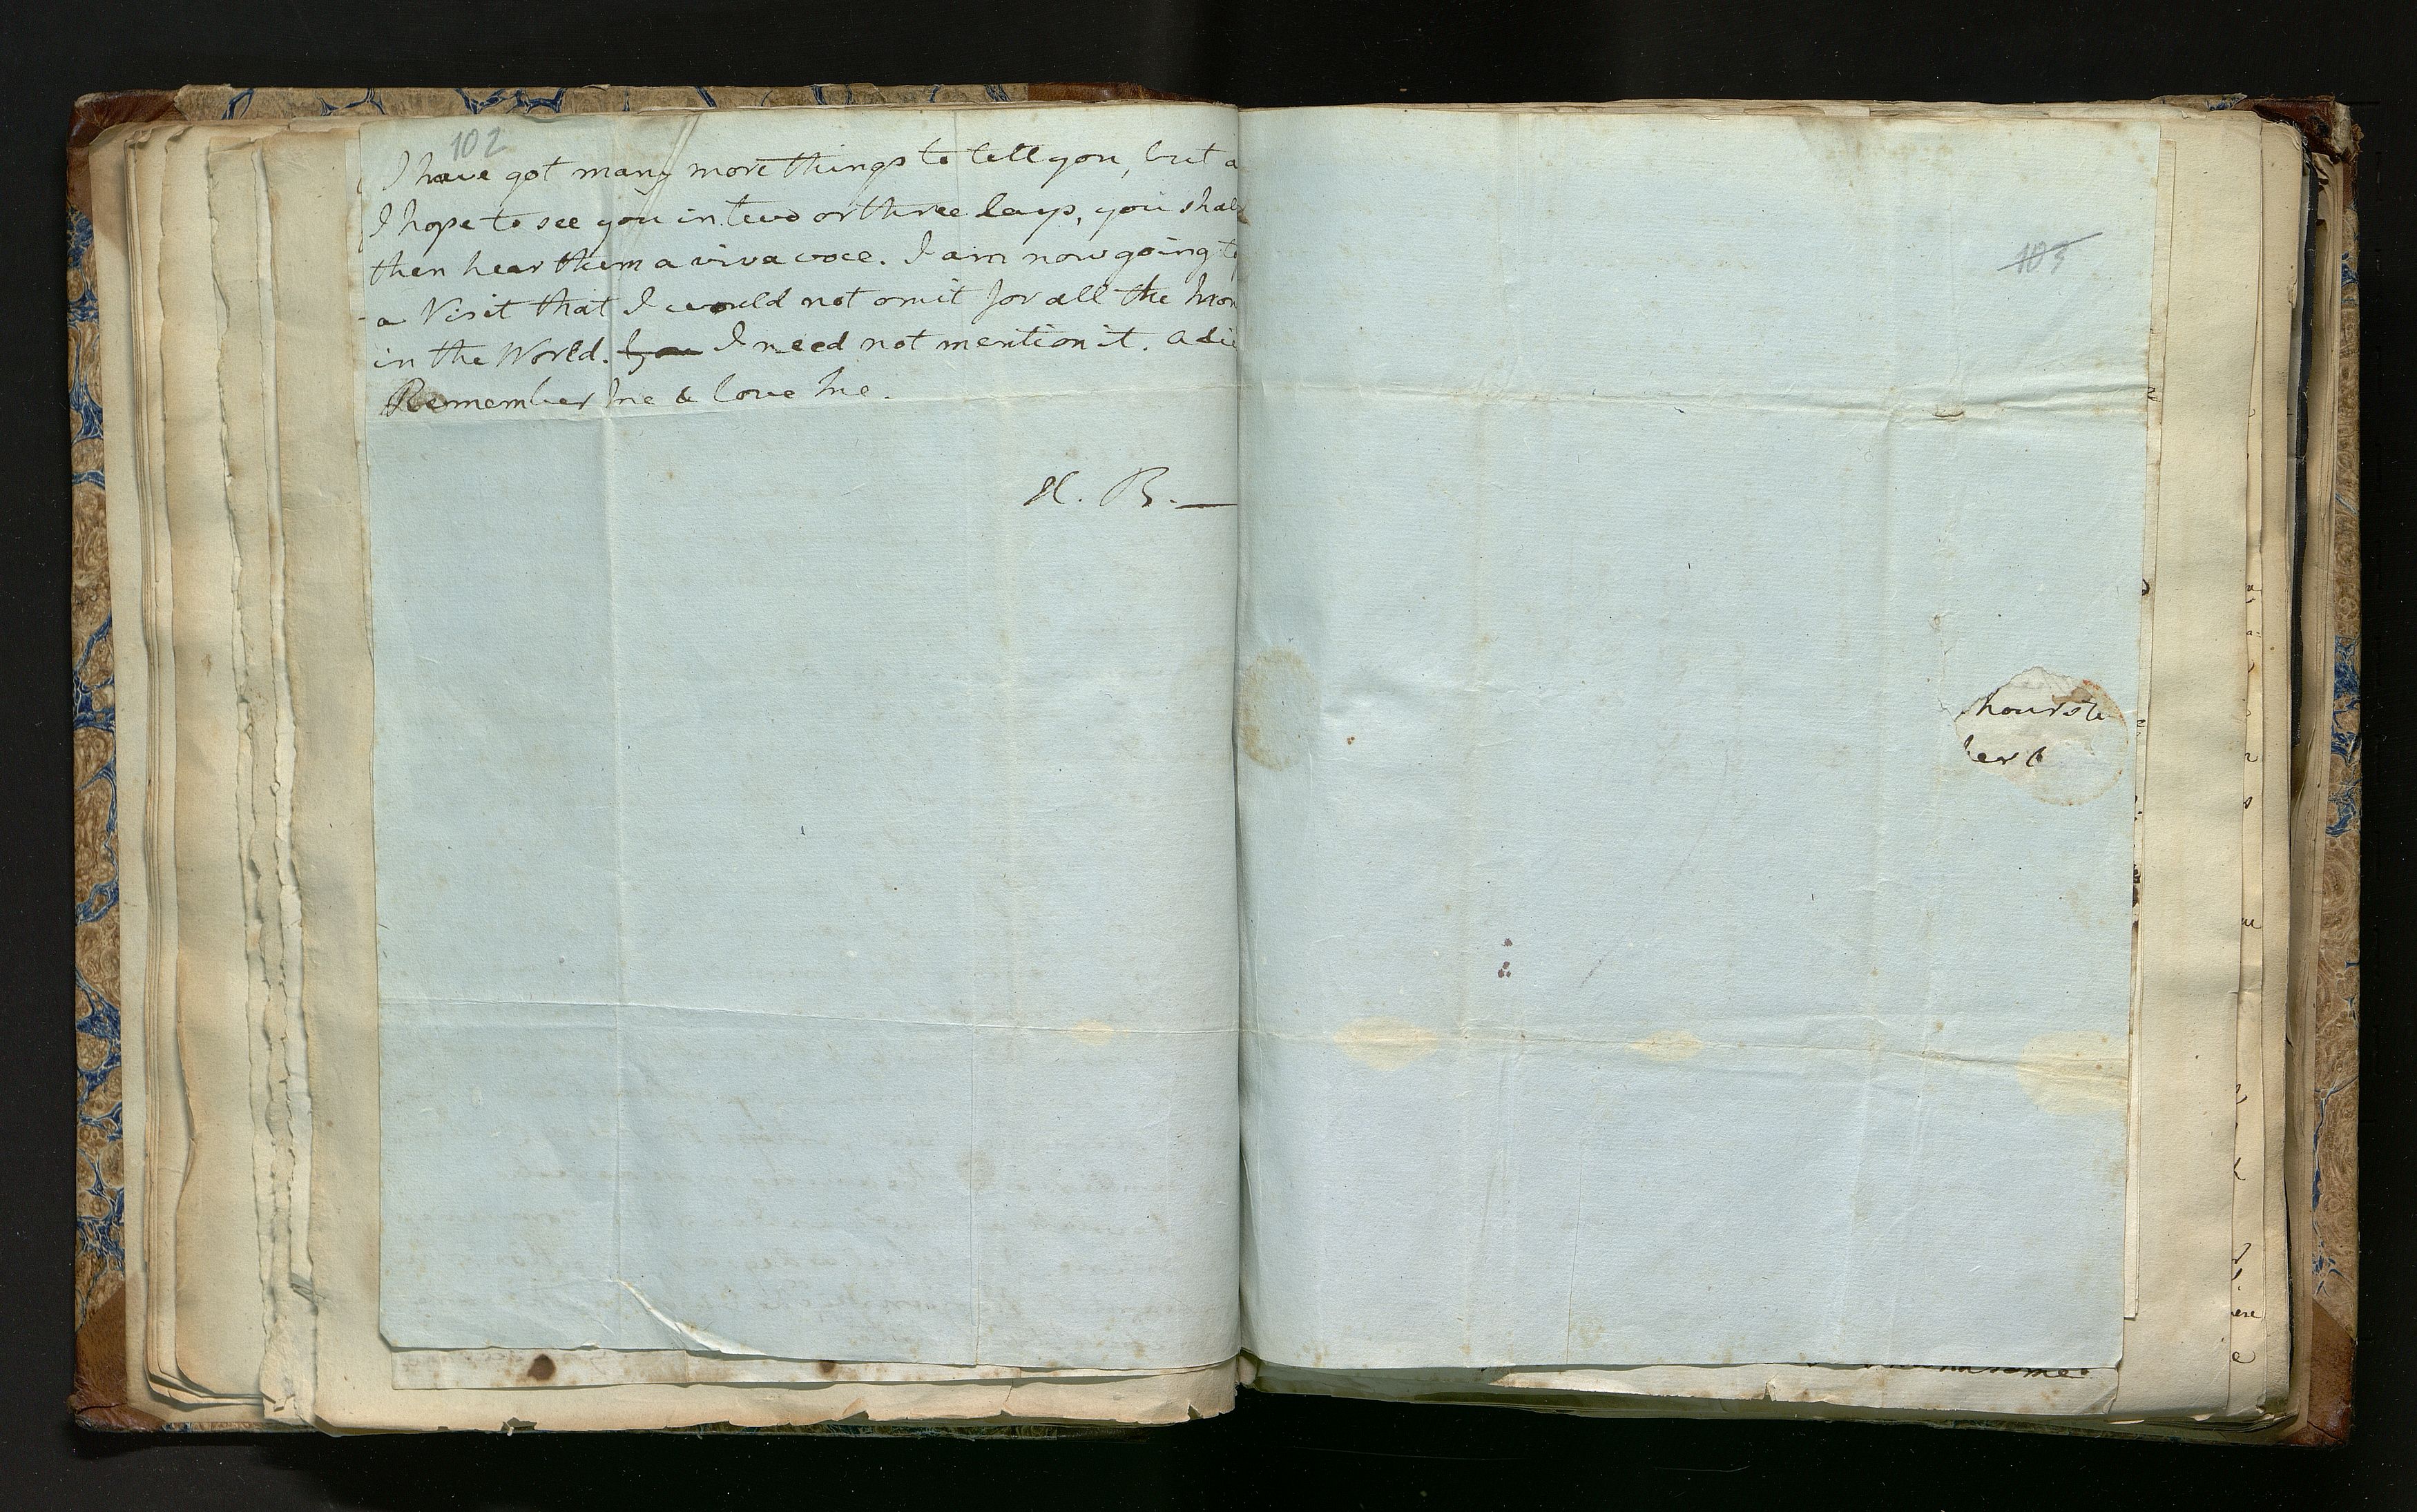 102
I have got many more things to tell you, but a
I hope to see you in two or three days, you shall
then hear them a viva voce. I am now going to
a Visit that I would not omit for all the
in the World. I need not mention it. adie
Remember me & love me.
H. B.—
103
hours to
her